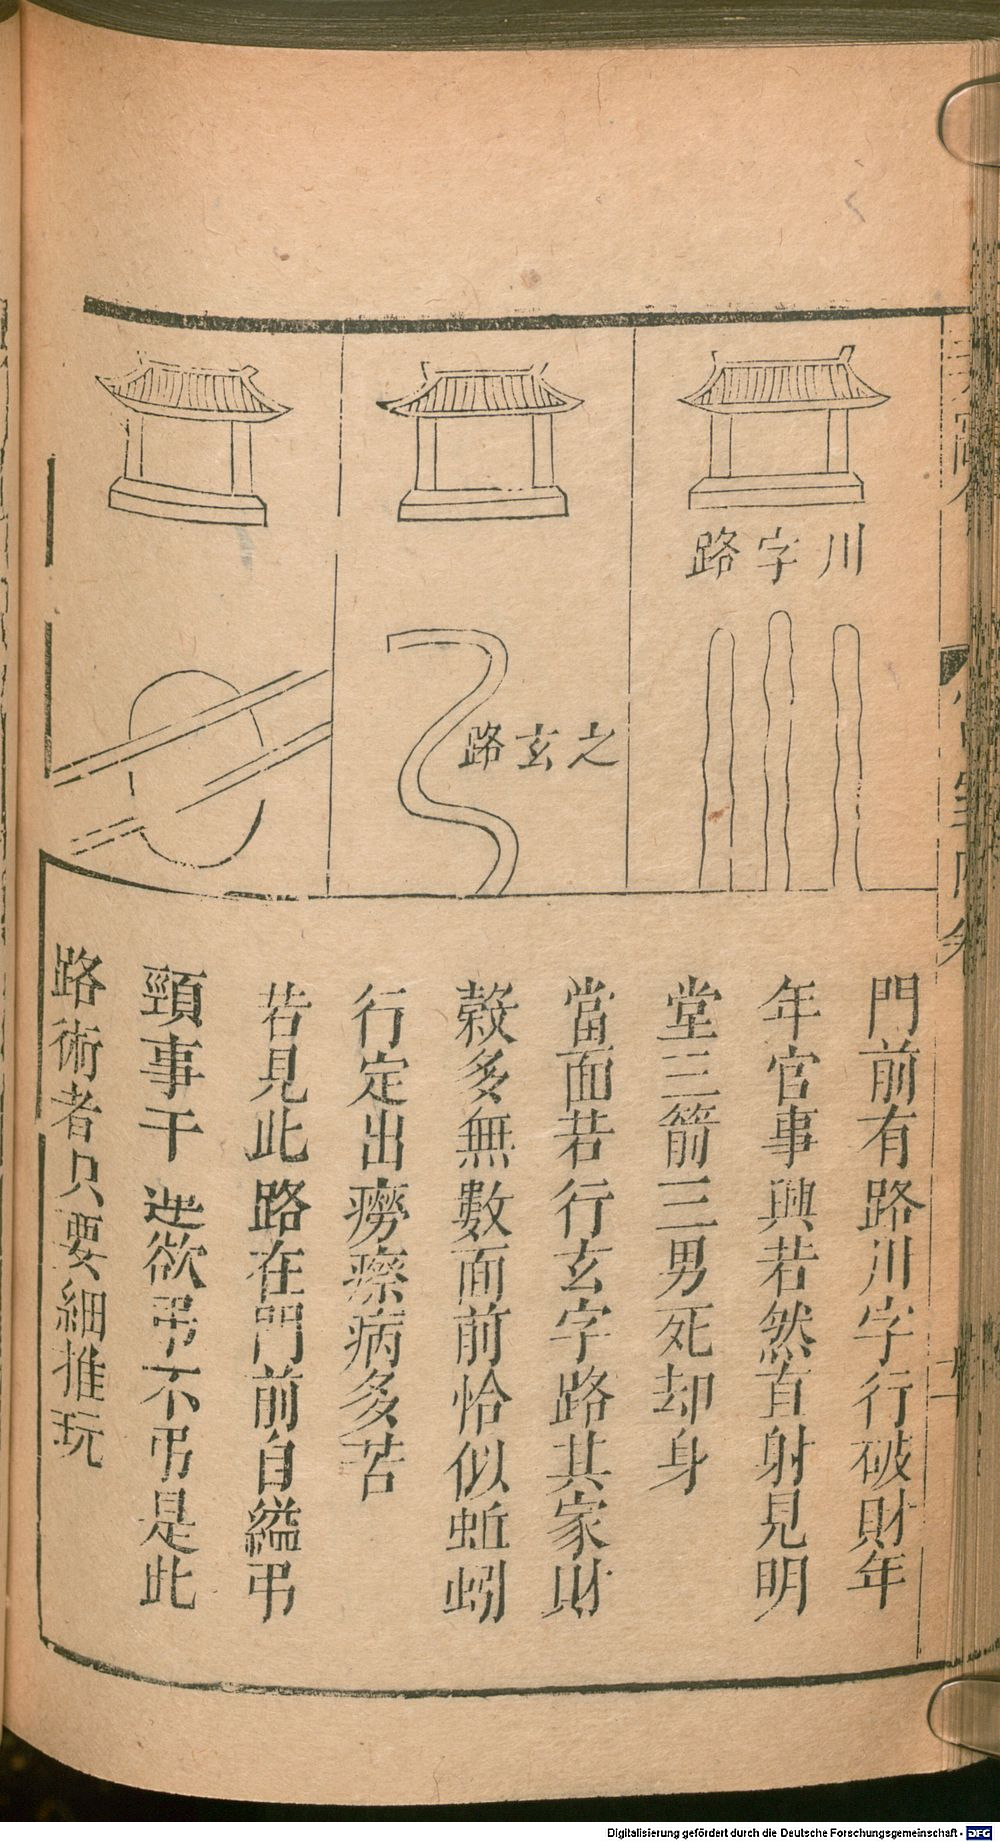 川字路
之玄路
門前有路川字行破財年
年官事興若然直射見明
堂三箭三男死却身
當面若行玄字路其家財
穀多無數面前恰似蚯蚓
行定出癆瘵病多苦
若見此路在門前自縊弔
頸事干連欲弔不弔是此
路術者只要細推玩
Digitalisierung gefördert durch die Deutsche Forschungsgemeinschaft - DFG